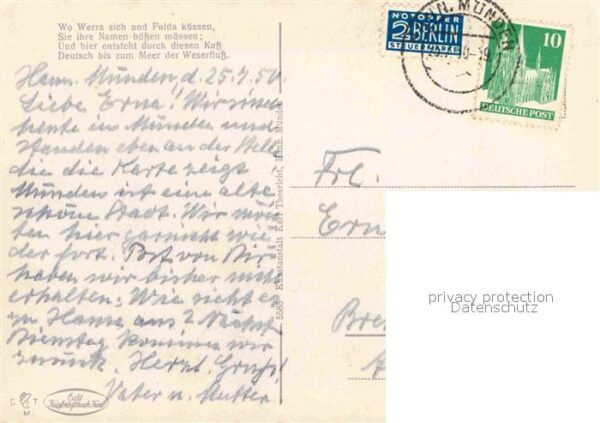 Wo Werra sich und Fulda küssen,
Sie ihre Namen büßen müssen;
Und hier entsteht durch diesen Kuß
Deutsch bis zum Meer der Weserfluß.
Hann. Münden d. 25.7.50
Liebe Erna! Wir sind
heute in Münden und
standen eben an der Stelle
die die Karte zeigt
Münden ist eine alte
schöne Stadt. Wir möch
ten hier garnicht wie
der fort. Post von Dir
haben wir bisher nicht
erhalten. Wie sieht es
zu Hause aus? Nächst
Dienstag kommen wir
zurück. Herzl. Gruß!
Vater u. Mutter
C T.
M.
Echt
Kupfertiefdruck
5565 Kunstanstalt Karl Thoericht, Hann. Münden
NOTOPFER
2 BERLIN
STEUERMARKE
HANN. MÜNDEN
10
DEUTSCHE POST
Frl.
Ern
Bre
privacy protection
Datenschutz